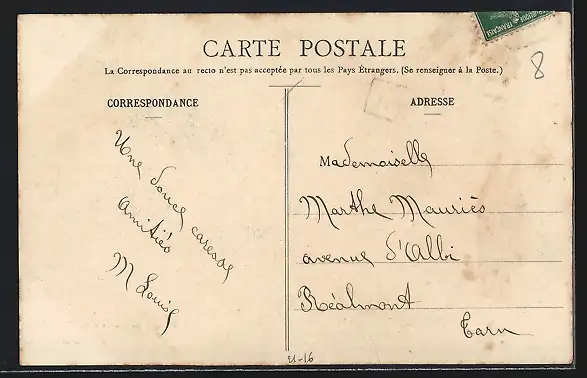 CARTE POSTALE
La Correspondance au recto n'est pas acceptée par tous les Pays Étrangers. (Se renseigner à la Poste.)
CORRESPONDANCE
Une douce caresse
Amitiés
M Louis
ADRESSE
Mademoiselle
Marthe Mauriès
avenue d'Albi
Réalmont
Tarn
8
21-16